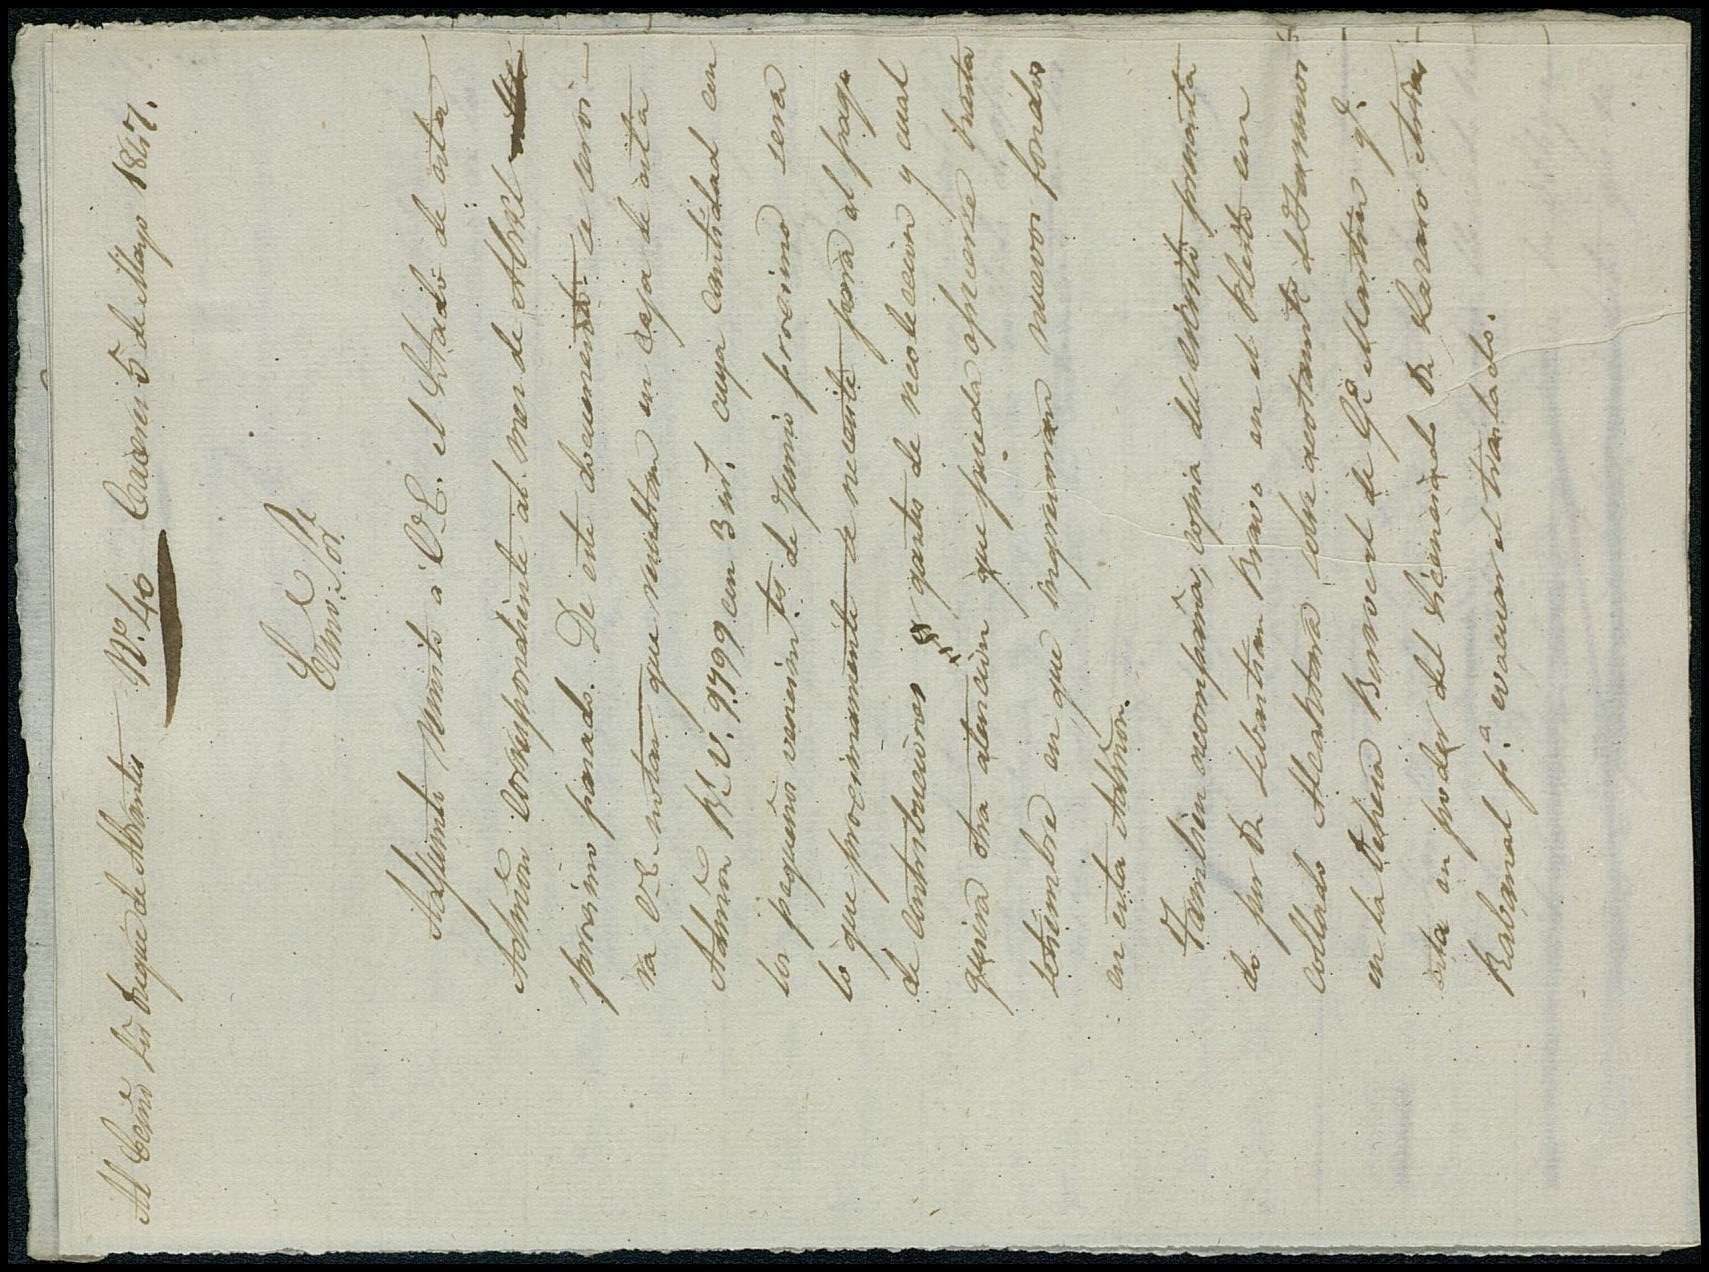 Al Excmo Sor Duque de Abrantes Nº. 40 Caceres 5 de Mayo 1847.
Excmo. Sor.
Adjunto remito á V.E. el Estado de esta
Admon correspondiente al mes de Abril
proximo pasado. De este documento se servi-
rá V.E. notar que resultan en caja de esta
Admon Rs. V. 9799 con 3 ms. cuya cantidad con
los pequeños vencimtos. de Junio procsimo será
lo que procsimamente se necesite para el pago
de contribuciones y gastos de recoleccion y cual
quiera otra atencion que pueda ofrecerse hasta
setiembre en que ingresarán nuevos fondos
en esta Admon.
Tambien acompaña, copia del escrito presenta
do por Dn. Sebastian Bravo en el Pleito con
Collado Alcantara sobre acotamto. de Terrenos
en la Dehesa Borrocal de Sn. Martin qe.
está en poder del Licenciado Dn. Lazaro Arias
Rabanal pa. evacuar el traslado.